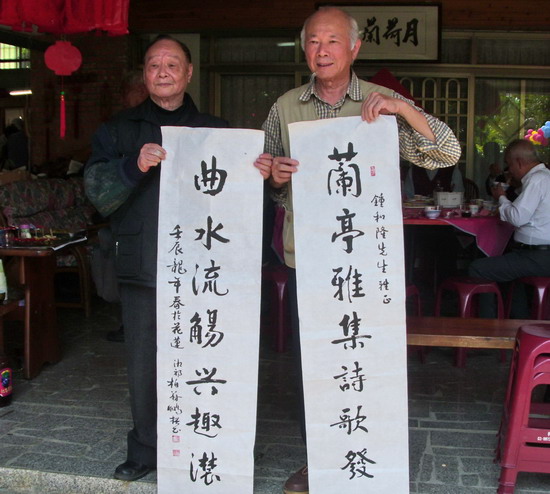 月荷蘭
鍾和隆先生雅正
蘭亭雅集詩歌發
曲水流觴兴趣濃
壬辰龍年春於花蓮